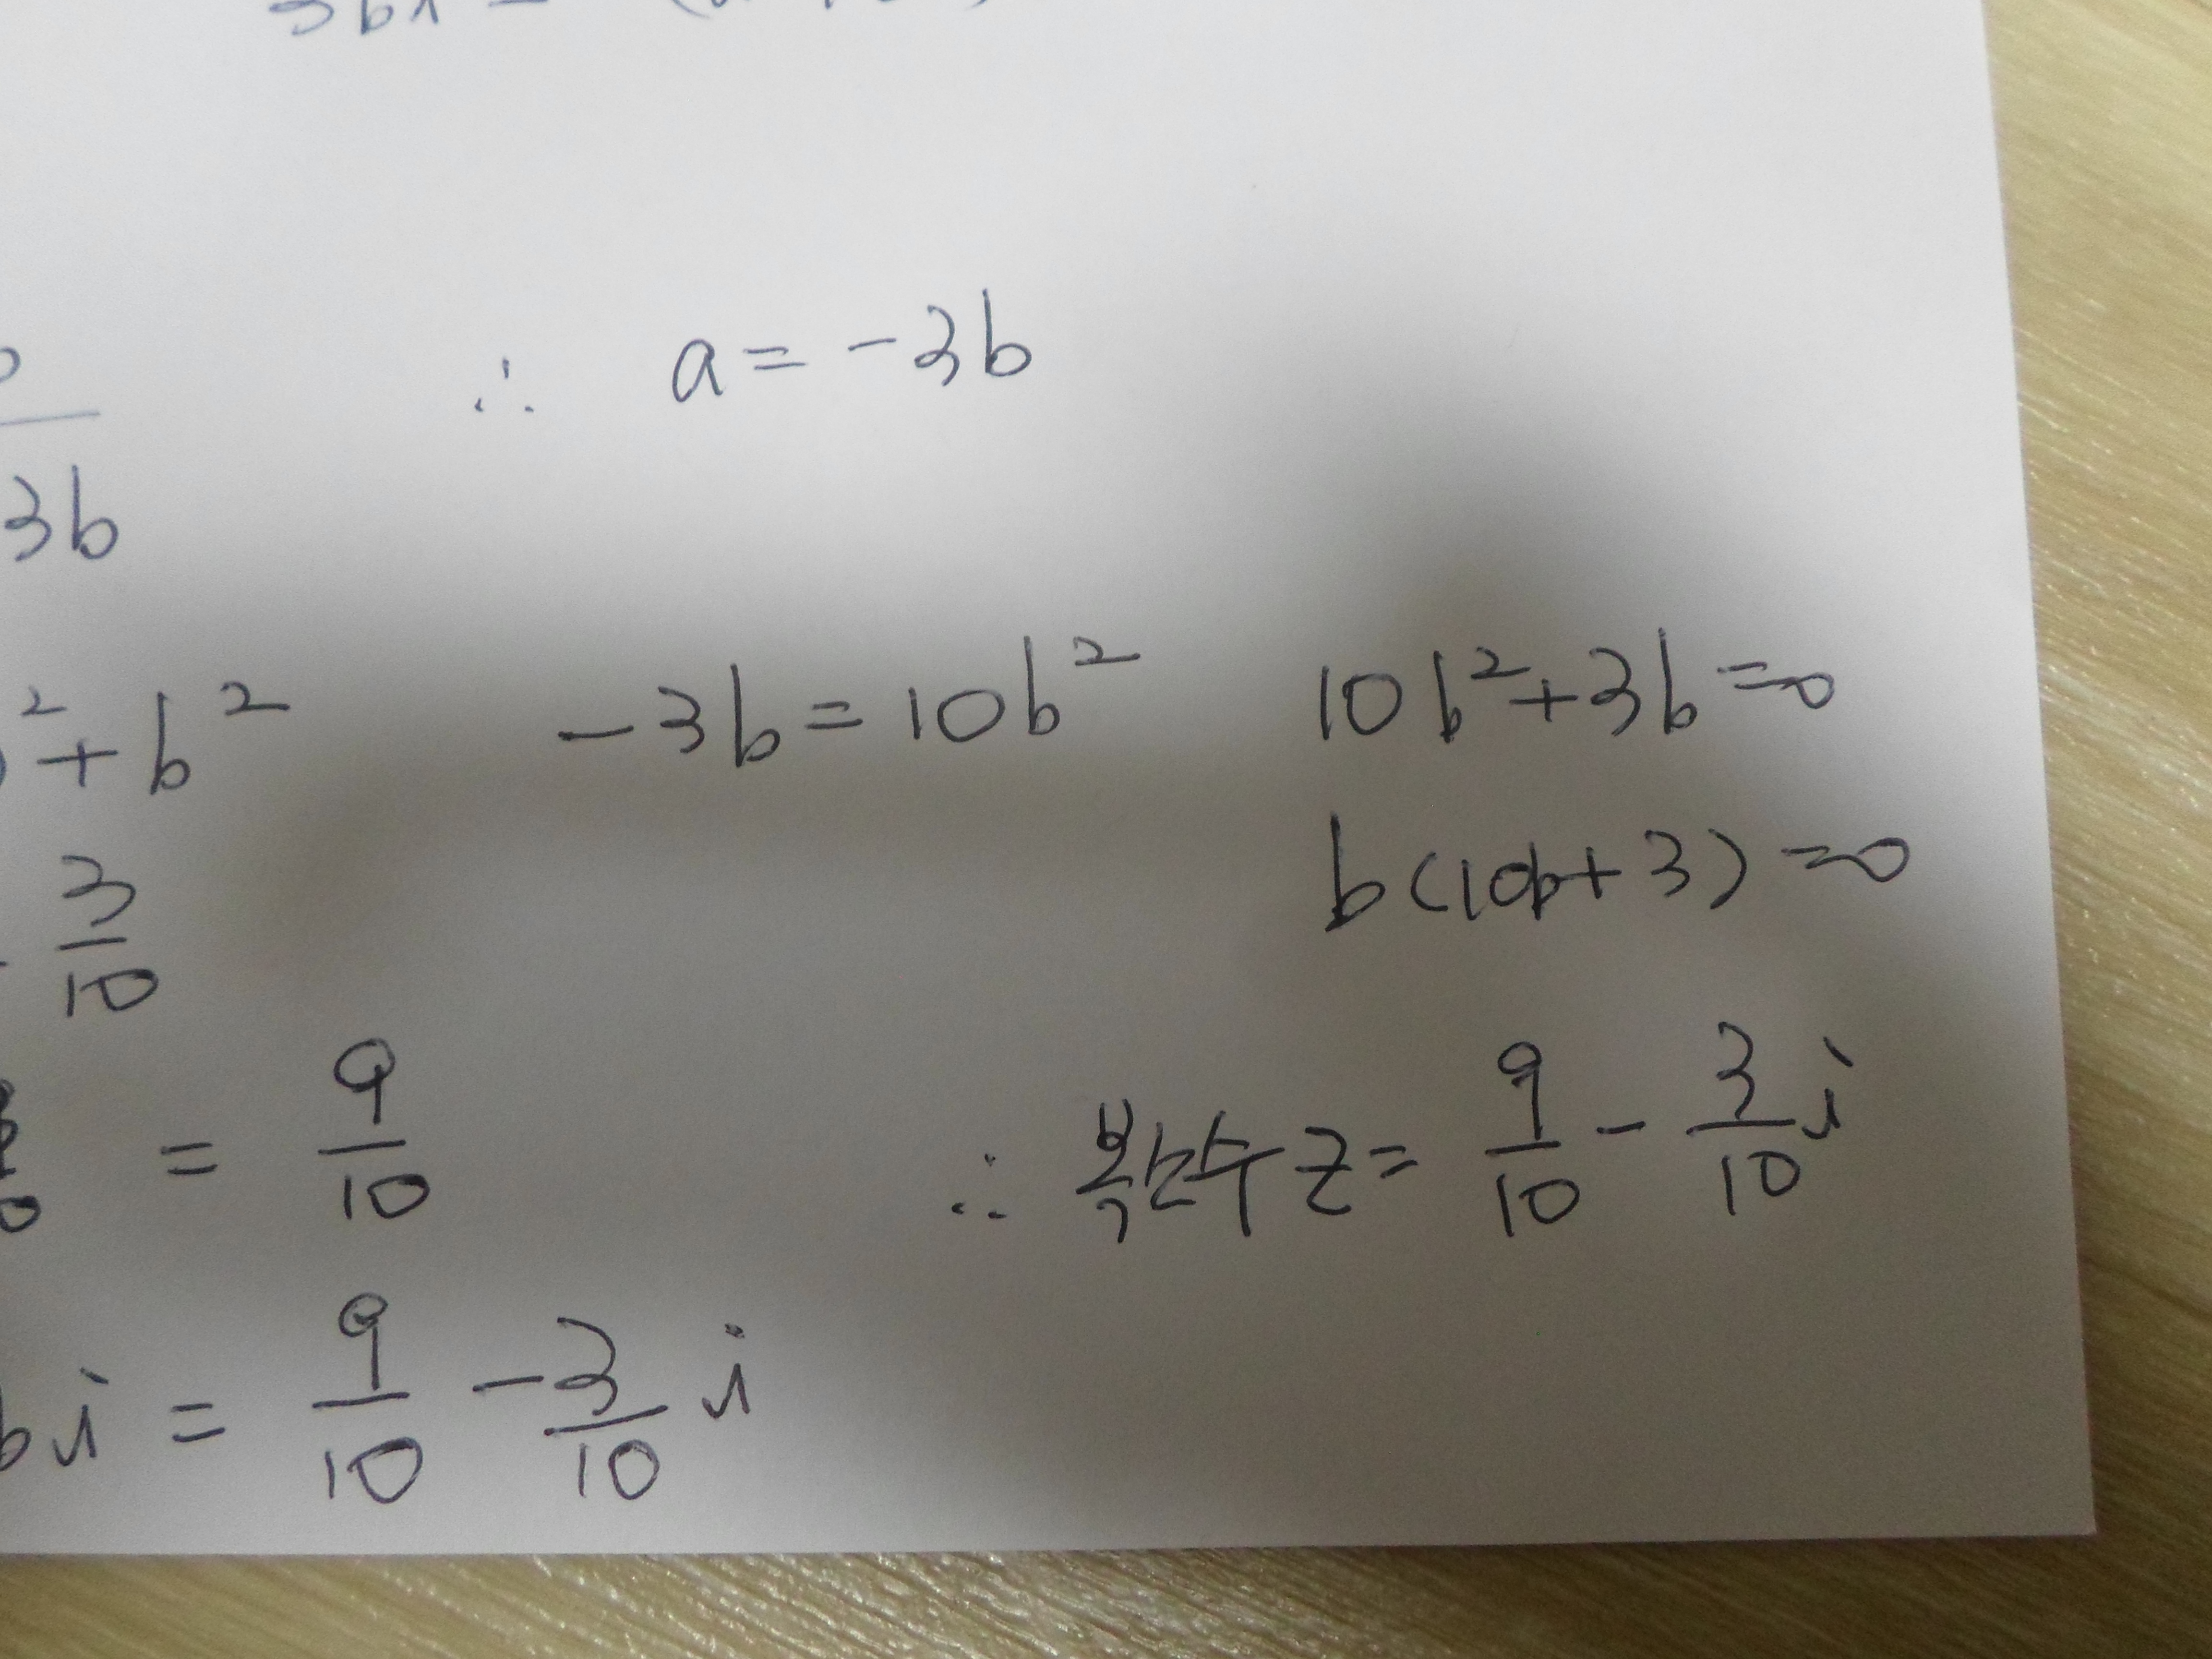 ∴ a = -3b
3b
² + b²   -3b = 10b²   10b² + 3b = 0
3/10   b(10b + 3) = 0
= 9/10   ∴ 복소수 z = 9/10 - 3/10 i
bi = 9/10 - 3/10 i